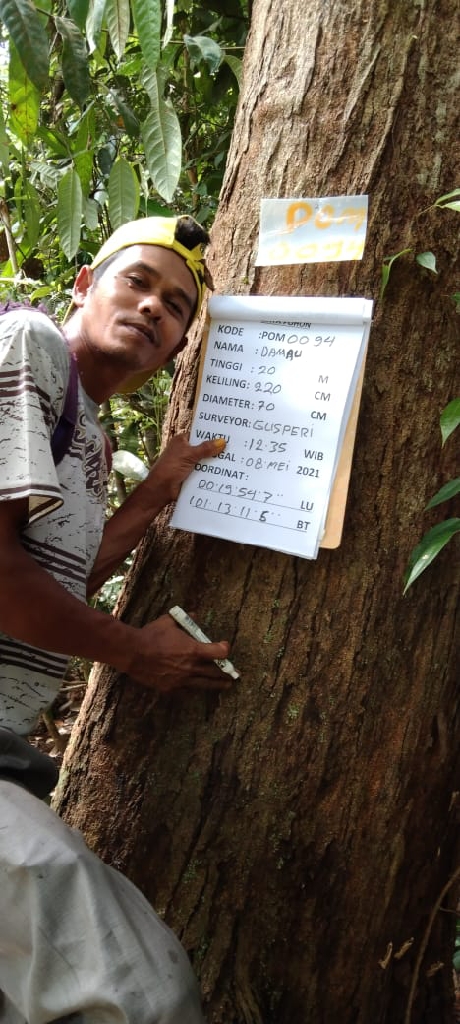 POM
0094
KODE :POM 0094
NAMA :DAMAU
TINGGI :20 M
KELILING: 220 CM
DIAMETER: 70 CM
SURVEYOR: GUSPERI
WAKTU :12:35 WIB
GAL :08 MEI 2021
OORDINAT:
00.19.54.7" LU
101.13.11.6" BT